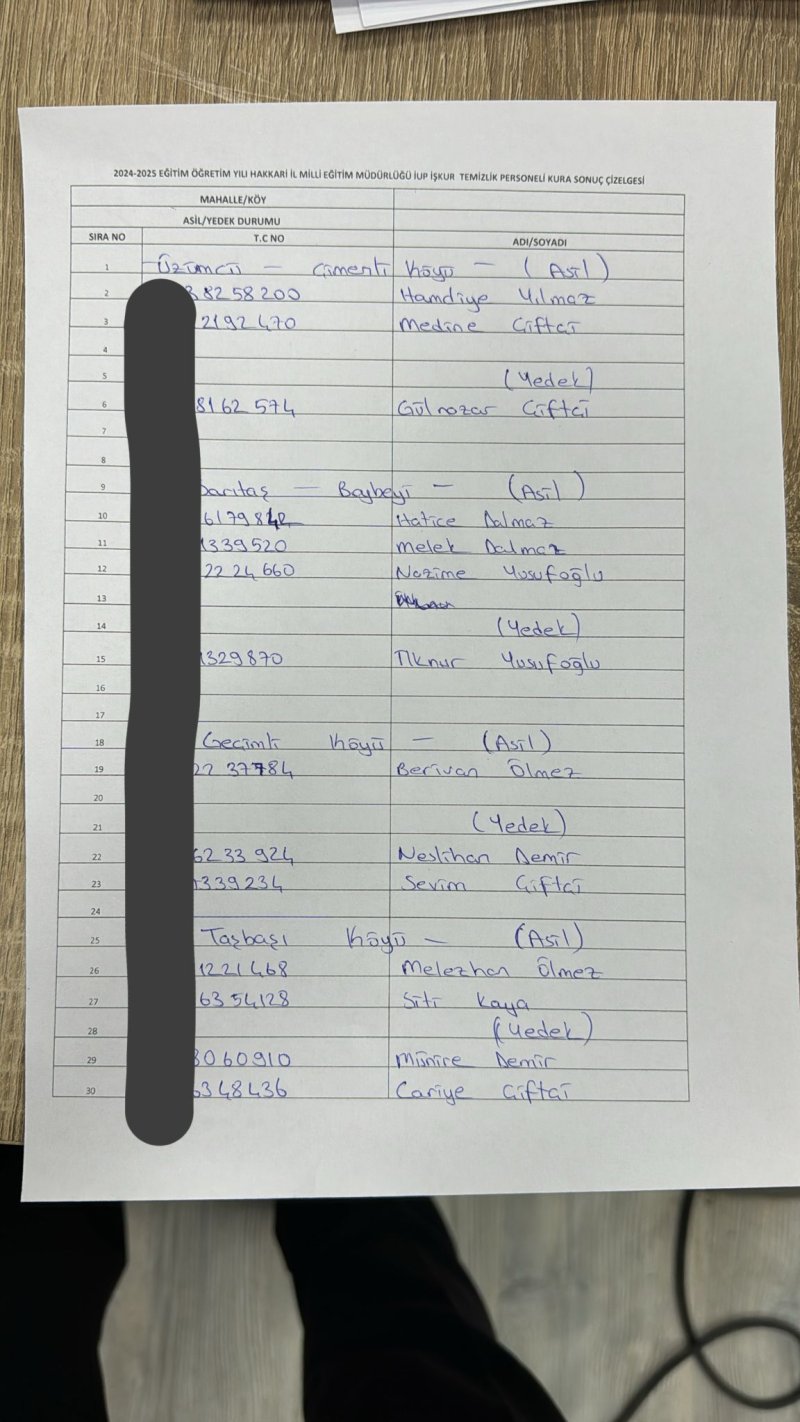 2024-2025 EĞİTİM ÖĞRETİM YILI HAKKARİ İL MİLLİ EĞİTİM MÜDÜRLÜĞÜ İUP İŞKUR TEMİZLİK PERSONELİ KURA SONUÇ ÇİZELGESİ
MAHALLE/KÖY
ASİL/YEDEK DURUMU
SIRA NO T.C NO ADI/SOYADI
1 Üzümcü — Çimenli Köyü — (Asil)
2 8258200 Hamdiye Yılmaz
3 2192470 Medine Çiftçi
4
5 (Yedek)
6 8162574 Gülnazar Çiftçi
7
8
9 — Baybeyi — (Asil)
10 Hatice Dalmaz
11 339520 Melek Dalmaz
12 2224660 Nazime Yusufoğlu
13
14 (Yedek)
15 1329870 İlknur Yusufoğlu
16
17
18 Geçimli Köyü — (Asil)
19 2237784 Berivan Ölmez
20
21 (Yedek)
22 6233924 Neslihan Demir
23 339234 Sevim Çiftçi
24
25 Taşbaşı Köyü — (Asil)
26 1221468 Melezhan Ölmez
27 6354128 Siti Kaya
28 (Yedek)
29 060910 Münire Demir
30 348436 Cariye Çiftçi